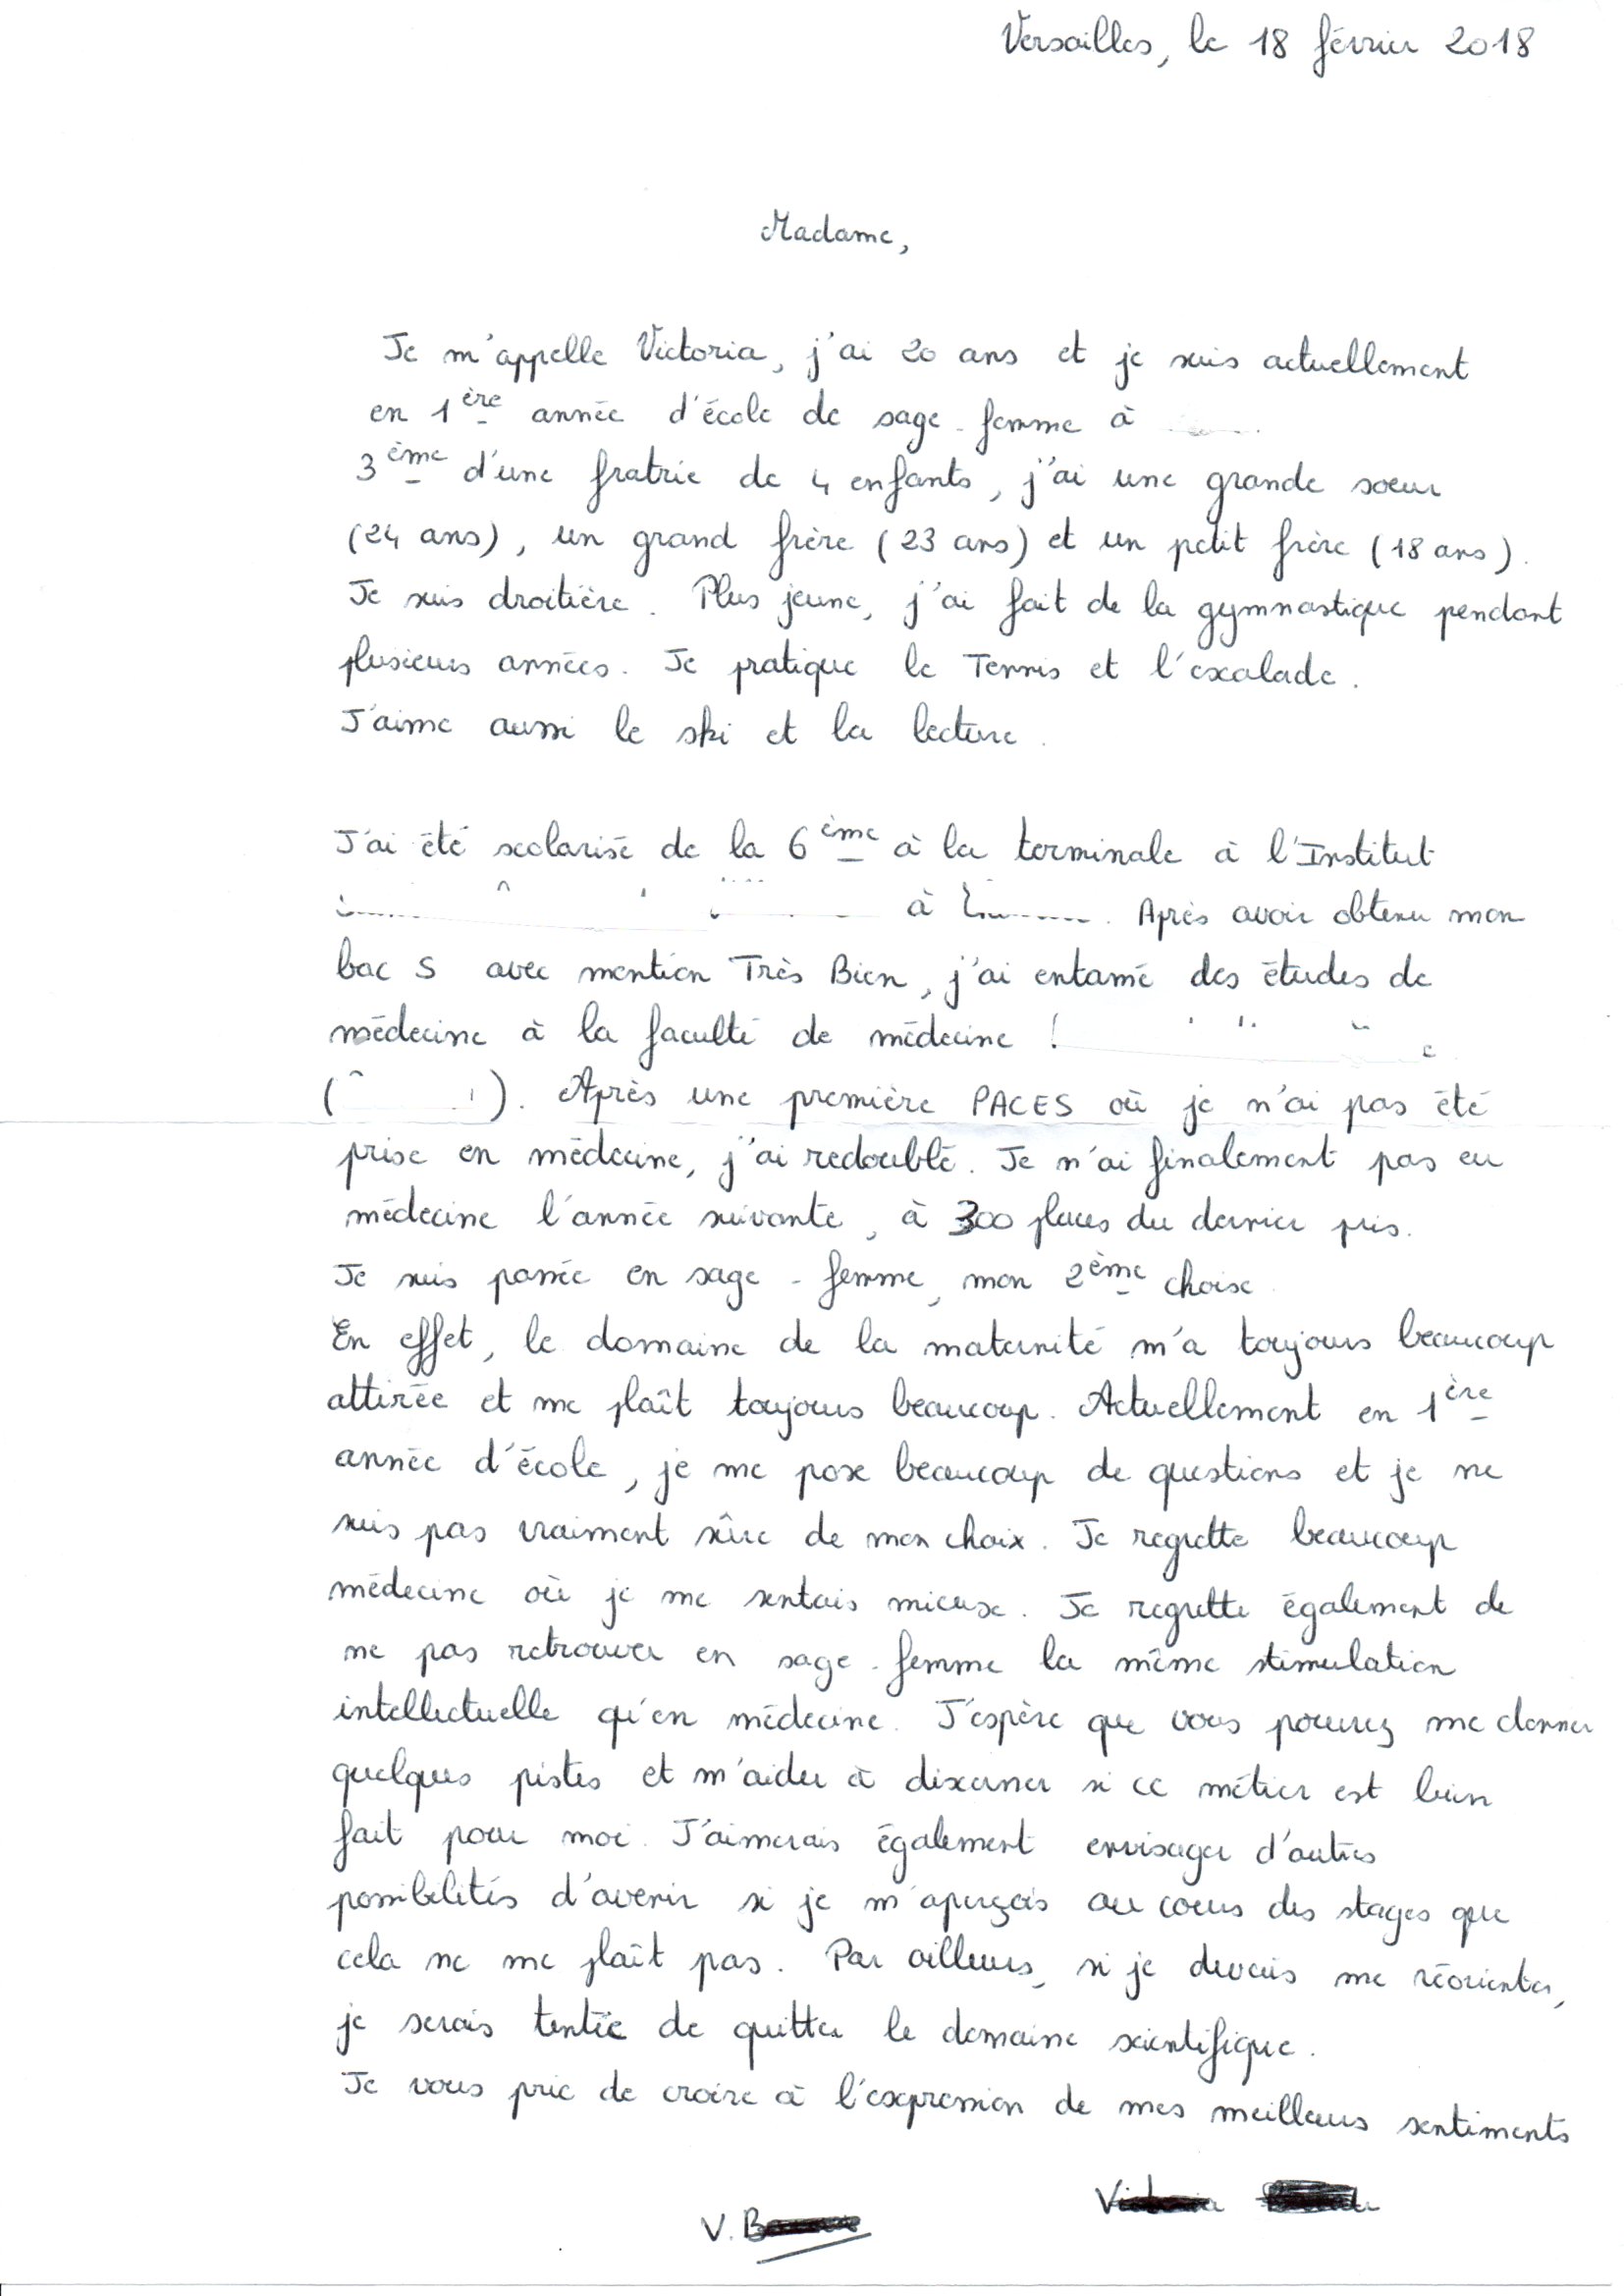 Versailles, le 18 février 2018
Madame,
Je m'appelle Victoria, j'ai 20 ans et je suis actuellement
en 1ère année d'école de sage-femme à
3ème d'une fratrie de 4 enfants, j'ai une grande soeur
(24 ans), un grand frère (23 ans) et un petit frère (18 ans).
Je suis droitière. Plus jeune, j'ai fait de la gymnastique pendant
plusieurs années. Je pratique le Tennis et l'escalade.
J'aime aussi le ski et la lecture.
J'ai été scolarisé de la 6ème à la terminale à l'Institut
à . Après avoir obtenu mon
bac S avec mention Très Bien, j'ai entamé des études de
médecine à la faculté de médecine
( ). Après une première PACES où je n'ai pas été
prise en médecine, j'ai redoublé. Je n'ai finalement pas eu
médecine l'année suivante, à 300 places du dernier pris.
Je suis passée en sage-femme, mon 2ème choix.
En effet, le domaine de la maternité m'a toujours beaucoup
attirée et me plaît toujours beaucoup. Actuellement en 1ère
année d'école, je me pose beaucoup de questions et je ne
suis pas vraiment sûre de mon choix. Je regrette beaucoup
médecine où je me sentais mieux. Je regrette également de
ne pas retrouver en sage-femme la même stimulation
intellectuelle qu'en médecine. J'espère que vous pourrez me donner
quelques pistes et m'aider à discerner si ce métier est bien
fait pour moi. J'aimerais également envisager d'autres
possibilités d'avenir si je m'aperçois au cours des stages que
cela ne me plaît pas. Par ailleurs, si je devais me réorienter,
je serais tentée de quitter le domaine scientifique.
Je vous prie de croire à l'expression de mes meilleurs sentiments
V. B